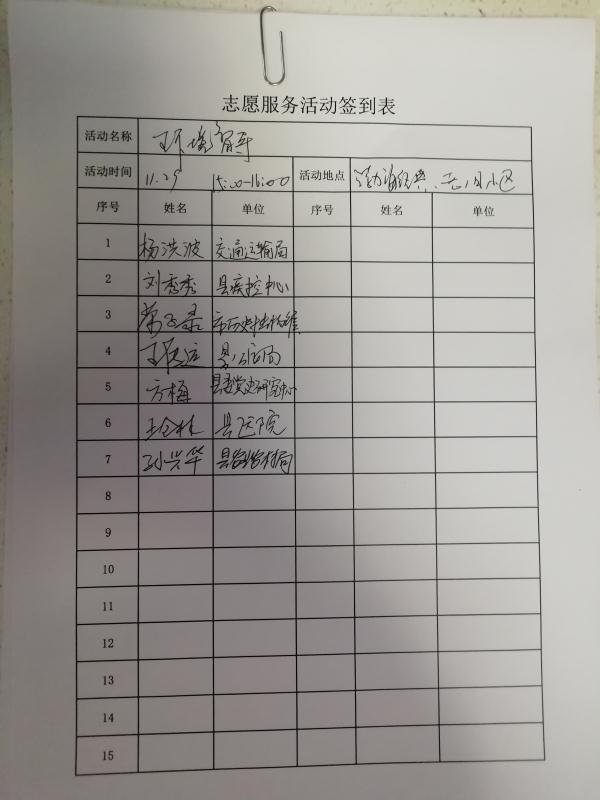 志愿服务活动签到表
活动名称 环境督导
活动时间 11.29 15:00-16:00 活动地点 小区
序号 姓名 单位 序号 姓名 单位
1 杨洪波 交通运输局
2 刘秀秀 县疾控中心
3
4
5 方梅 县委党史研究中心
6 县医院
7 孙兴华
8
9
10
11
12
13
14
15